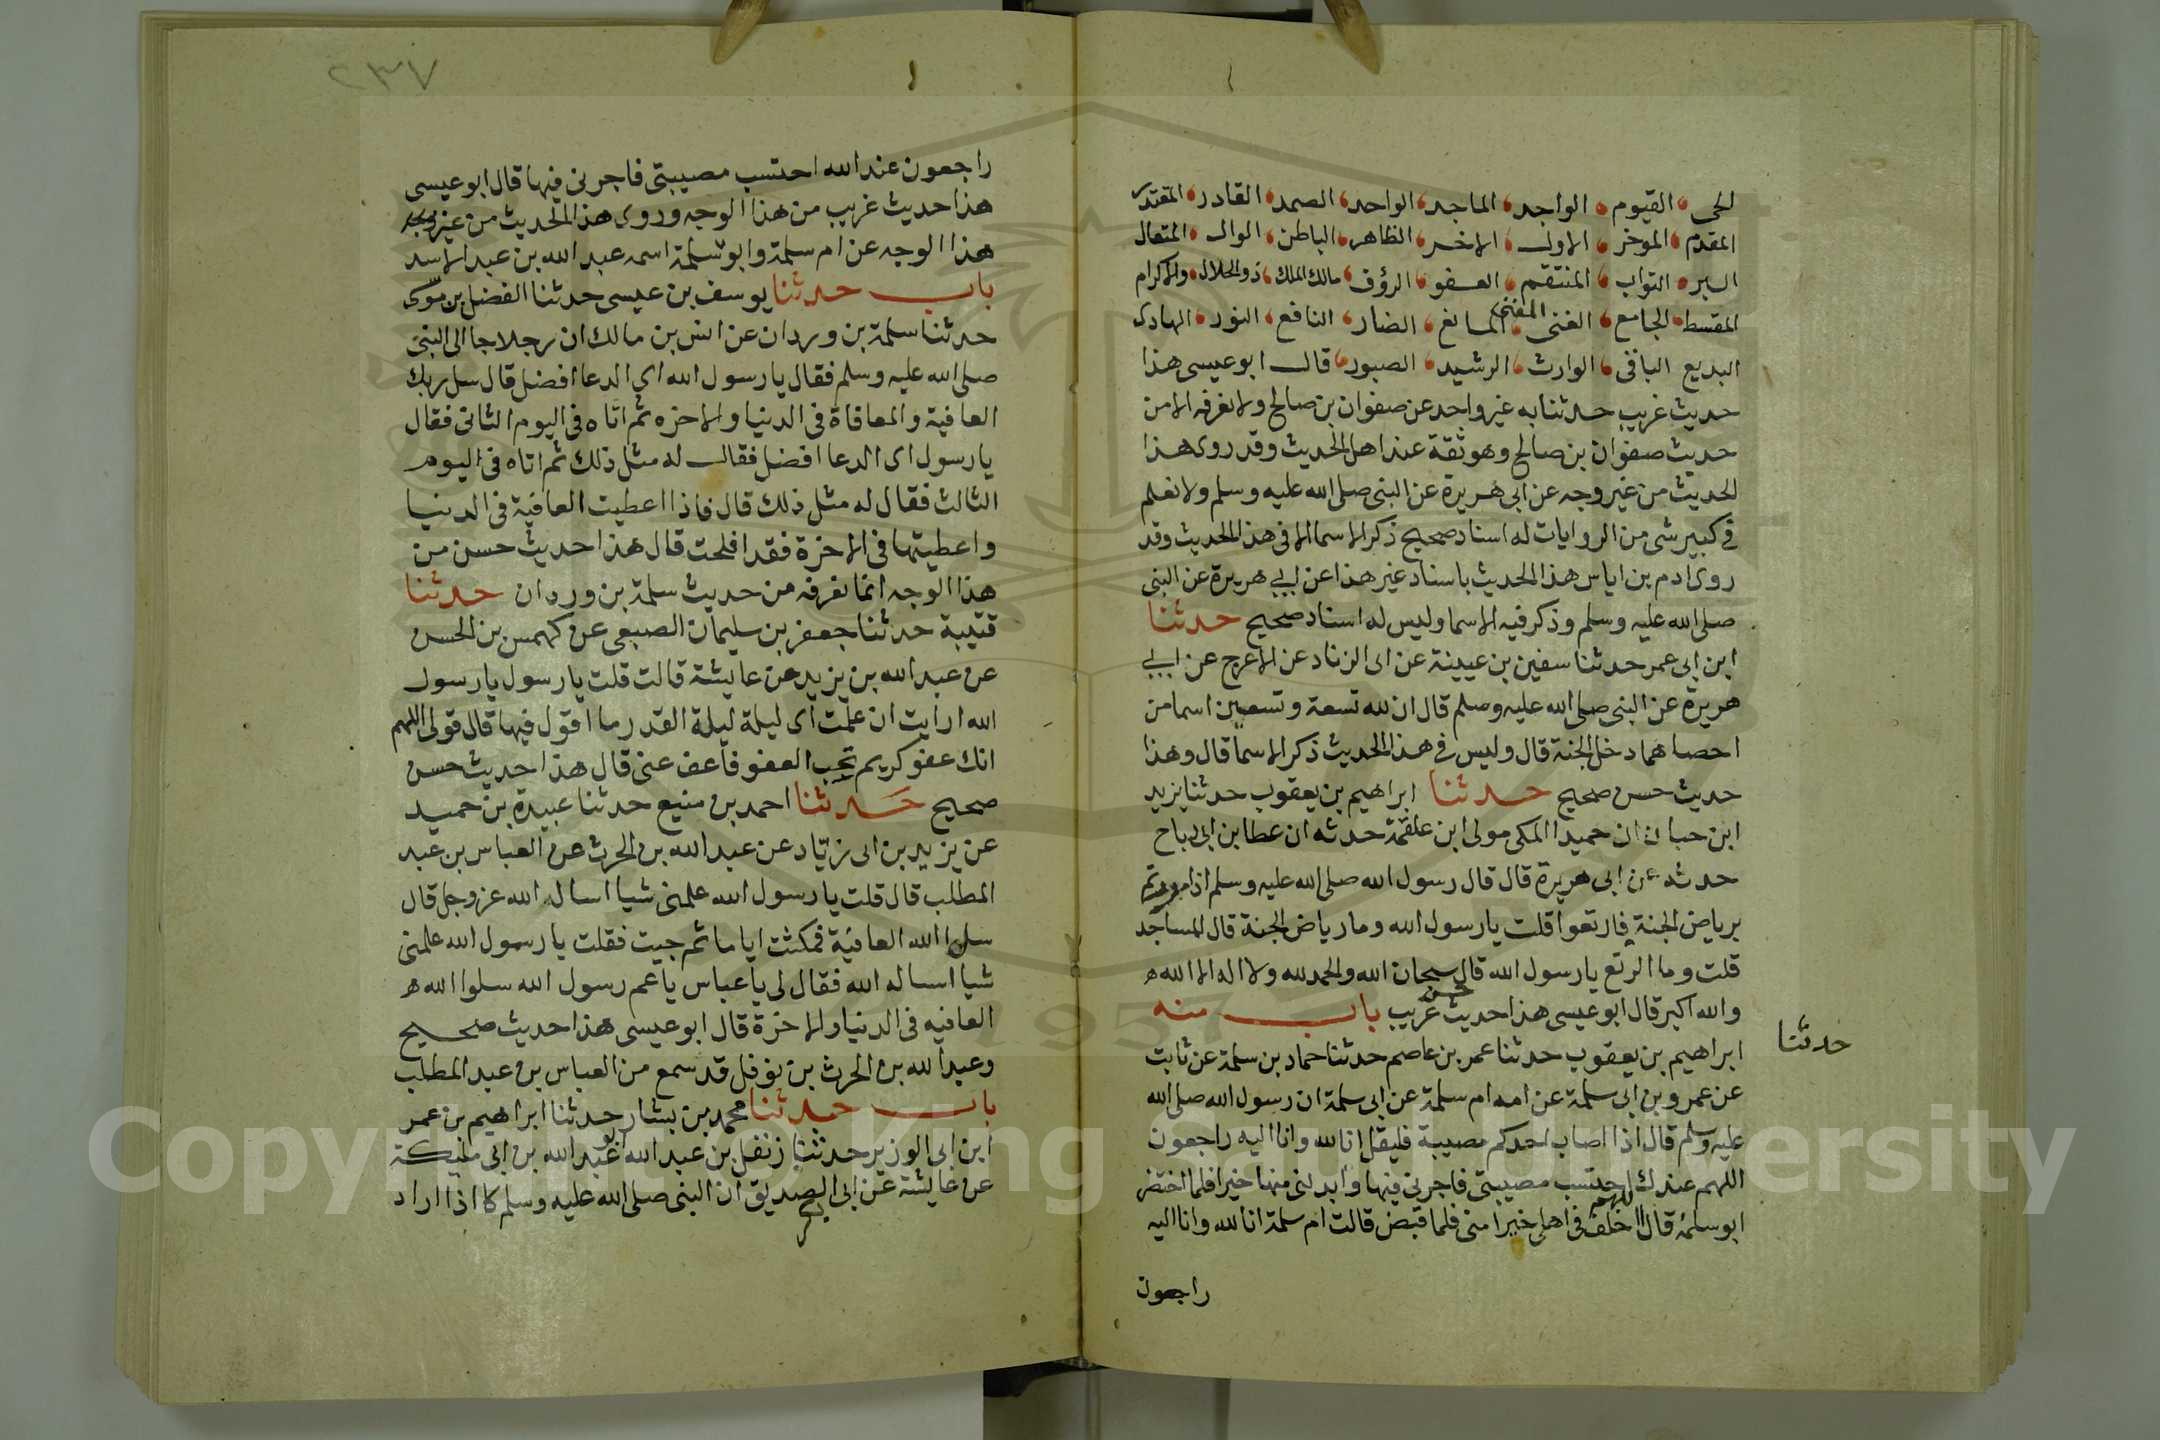 الحي القيوم الواجد الماجد الواحد الصمد القادر المقتدر
المقدم الموخر الاول الاخر الظاهر الباطن الوال المتعال
البر التواب المنتقم العفو الروف مالك الملك ذو الجلال والاكرام
المقسط الجامع الغنى المغنى المانع الضار النافع النور الهادى
البديع الباقى الوارث الرشيد الصبور قال ابو عيسى هذا
حديث غريب حدثنا به غير واحد عن صفوان بن صالح ولا نعرفه الا من
حديث صفوان بن صالح وهو ثقة عند اهل الحديث وقد روى هذا
الحديث من غير وجه عن ابى هريرة عن النبى صلى الله عليه وسلم ولا نعلم
فى كبير شى من الروايات له اسناد صحيح ذكر الاسما الا فى هذا الحديث وقد
روى ادم بن اياس هذا الحديث باسناد غير هذا عن ابى هريرة عن النبى
صلى الله عليه وسلم وذكر فيه الاسما وليس له اسناد صحيح حدثنا
ابن ابى عمر حدثنا سفين بن عيينة عن ابى الزناد عن الاعرج عن ابى
هريرة عن النبى صلى الله عليه وصلم قال ان لله تسعة وتسعين اسما من
احصاهما دخل الجنة قال وليس فى هذا الحديث ذكر الاسما قال وهذا
حديث حسن صحيح حدثنا ابراهيم بن يعقوب حدثنا يزيد
ابن حبان ان حميدا المكى مولى ابن علقمة حدثه ان عطا بن ابى رباح
حدثه عن ابى هريرة قال قال رسول الله صلى الله عليه وسلم اذا مررتم
برياض الجنة فارتعوا قلت يا رسول الله وما رياض الجنة قال المساجد
قلت وما الرتع يا رسول الله قال سبحان الله والحمد لله ولا اله الا الله ه
والله اكبر قال ابو عيسى هذا حديث حسن غريب باب منه
حدثنا
ابراهيم بن يعقوب حدثنا عمر بن عاصم حدثنا حماد بن سلمة عن ثابت
عن عمرو بن ابى سلمة عن امه ام سلمة عن ابى سلمة ان رسول الله صلى الله
عليه وسلم قال اذا اصاب احدكم مصيبة فليقل انا لله وانا اليه راجعون
اللهم عندك احتسب مصيبتى فاجرنى فيها وابدلنى منها خيرا فلما احتضر
ابو سلمة قال اللهم اخلف فى اهلى خيرا منى فلما قبض قالت ام سلمة انا لله وانا اليه
راجعون
٢٣٧
راجعون عند الله احتسب مصيبتى فاجرنى فيها قال ابو عيسى
هذا حديث غريب من هذا الوجه وروى هذا الحديث من غير وجه
هذا الوجه عن ام سلمة وابو سلمة اسمه عبد الله بن عبد الاسد
باب حدثنا يوسف بن عيسى حدثنا الفضل بن موسى
حدثنا سلمة بن وردان عن انس بن مالك ان رجلا جا الى النبى
صلى الله عليه وسلم فقال يا رسول الله اى الدعا افضل قال سل ربك
العافية والمعافاة فى الدنيا والاخره ثم اتاه فى اليوم الثانى فقال
يا رسول اى الدعا افضل فقال له مثل ذلك ثم اتاه فى اليوم
الثالث فقال له مثل ذلك قال فاذا اعطيت العافية فى الدنيا
واعطيتها فى الاخرة فقد افلحت قال هذا حديث حسن من
هذا الوجه انما نعرفه من حديث سلمة بن وردان حدثنا
قتيبة حدثنا جعفر بن سليمان الضبعى عن كهمس بن الحسن
عن عبد الله بن بزيد عن عايشة قالت قلت يا رسول يا رسول
الله ارايت ان علمت اى ليلة ليلة القدر ما اقول فيها قال قولى اللهم
انك عفو كريم تحب العفو فاعف عنى قال هذا حديث حسن
صحيح حدثنا احمد بن منيع حدثنا عبيدة بن حميد
عن يزيد بن ابى زياد عن عبد الله بن الحرث عن العباس بن عبد
المطلب قال قلت يا رسول الله علمنى شيا اساله الله عز وجل قال
سل الله العافية فمكثت اياما ثم جيت فقلت يا رسول الله علمنى
شيا اساله الله فقال لى يا عباس يا عم رسول الله سلوا الله ه
العافيه فى الدنيا والاخرة قال ابو عيسى هذا حديث صحيح
وعبد الله بن الحرث بن نوفل قد سمع من العباس بن عبد المطلب
باب حدثنا محمد بن بشار حدثنا ابراهيم بن عمر
ابن ابى الوزير حدثنا زنفل بن عبد الله ابو عبد الله بن ابى مليكة
عن عايشة عن ابى الصديق ان النبى صلى الله عليه وسلم كا اذا اراد
Copyright © King Saud University
1957